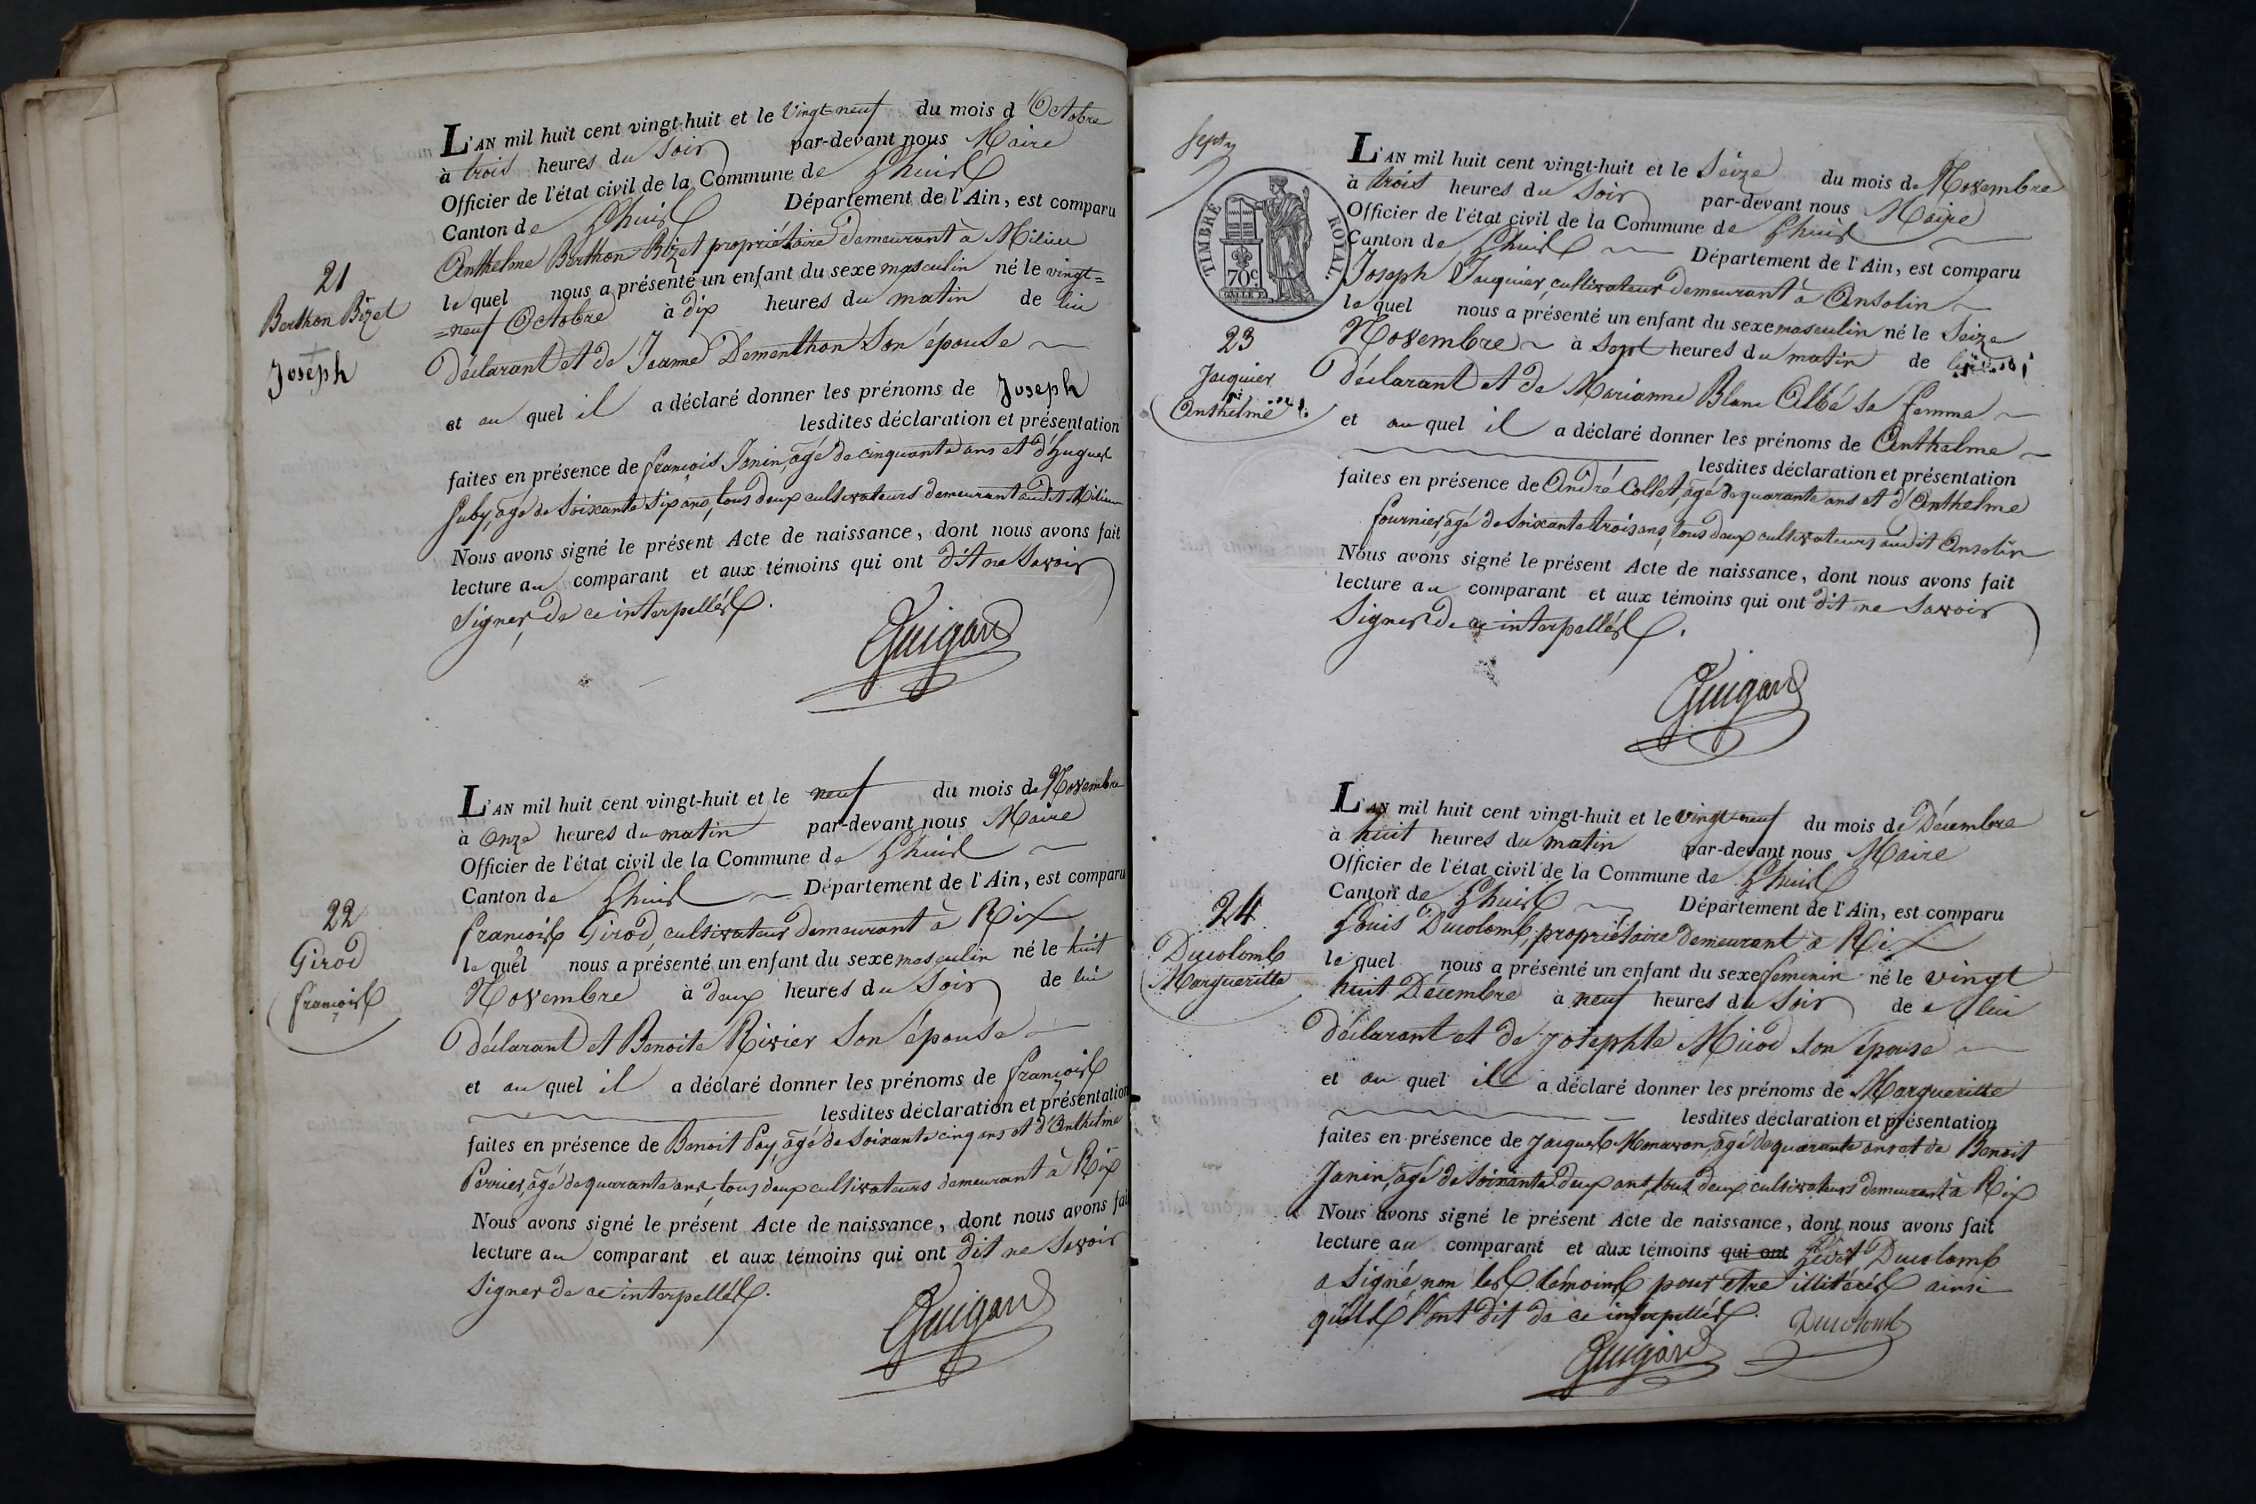 L'AN mil huit cent vingt-huit et le Vingt-neuf du mois d'Octobre
à trois heures du Soir par-devant nous Maire
Officier de l'état civil de la Commune de Lhuis
Canton de Lhuis Département de l'Ain, est comparu
Anthelme Berthon Bizet propriétaire demeurant à Milieu
le quel nous a présenté un enfant du sexe masculin né le vingt=
=neuf Octobre à dix heures du matin de lui
déclarant et de Jeanne Dementhon Son épouse
et au quel il a déclaré donner les prénoms de Joseph
lesdites déclaration et présentation
faites en présence de françois Janin, âgé de cinquante ans et d'hugues
Guby, âgé de Soixante Six ans, tous deux cultivateurs demeurant audit Milieu
Nous avons signé le présent Acte de naissance, dont nous avons fait
lecture au comparant et aux témoins qui ont dit ne Savoir
Signer de ce interpellés.
Guigard
21
Berthon Bizet
Joseph
L'AN mil huit cent vingt-huit et le neuf du mois de Novembre
à Onze heures du matin par-devant nous Maire
Officier de l'état civil de la Commune de Lhuis
Canton de Lhuis Département de l'Ain, est comparu
françois Girod, cultivateur demeurant à Rix
le quel nous a présenté un enfant du sexe masculin né le huit
Novembre à deux heures du Soir de lui
déclarant et Benoite Rivier Son épouse
et au quel il a déclaré donner les prénoms de françois
lesdites déclaration et présentation
faites en présence de Benoit Pay, âgé de Soixante cinq ans et d'Anthelme
Perrier, âgé de quarante ans, tous deux cultivateurs demeurant à Rix
Nous avons signé le présent Acte de naissance, dont nous avons fait
lecture au comparant et aux témoins qui ont dit ne Savoir
Signer de ce interpellés.
Guigard
22
Girod
françois
Sept
TIMBRE ROYAL
70c
L'AN mil huit cent vingt-huit et le Seize du mois de Novembre
à trois heures du Soir par-devant nous Maire
Officier de l'état civil de la Commune de Lhuis
Canton de Lhuis Département de l'Ain, est comparu
Joseph Jacquier, cultivateur demeurant à Ansolin
le quel nous a présenté un enfant du sexe masculin né le Seize
Novembre à Sept heures du matin de lui
déclarant et de Marianne Blanc Albé sa femme
et au quel il a déclaré donner les prénoms de Anthelme
lesdites déclaration et présentation
faites en présence de André Collet, âgé de quarante ans et d'Anthelme
fournier, âgé de Soixante trois ans, tous deux cultivateurs audit Ansolin
Nous avons signé le présent Acte de naissance, dont nous avons fait
lecture au comparant et aux témoins qui ont dit ne Savoir
Signer de ce interpellés.
Guigard
23
Jacquier
Anthelme
L'AN mil huit cent vingt-huit et le vingt-neuf du mois de Décembre
à huit heures du matin par-devant nous Maire
Officier de l'état civil de la Commune de Lhuis
Canton de Lhuis Département de l'Ain, est comparu
Louis Ducolomb, propriétaire demeurant à Rix
le quel nous a présenté un enfant du sexe feminin né le vingt
huit Décembre à neuf heures du Soir de lui
déclarant et de Josephte Micod son épouse
et au quel il a déclaré donner les prénoms de Margueritte
lesdites déclaration et présentation
faites en présence de Jacques Mmaron, âgé de quarante ans et de Benoit
Janin, âgé de Soixante deux ans, tous deux cultivateurs demeurant à Rix
Nous avons signé le présent Acte de naissance, dont nous avons fait
lecture au comparant et aux témoins qui ont Ducolomb
a Signé non les témoins pour etre illitérés ainsi
qu'ils l'ont dit de ce interpellés.
Ducolomb
Guigard
24
Ducolomb
Margueritte